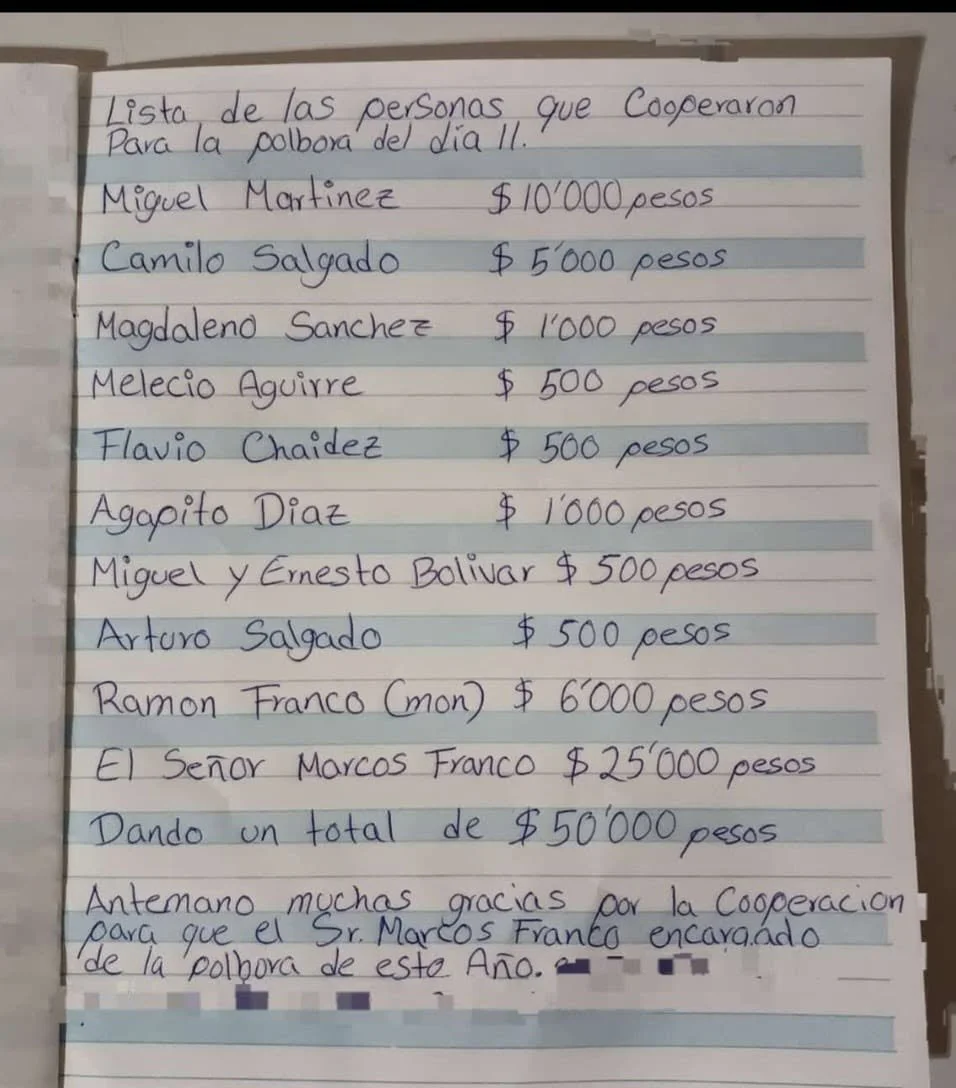 Lista de las personas que Cooperaron
Para la polbora del día 11.
Miguel Martinez $ 10'000 pesos
Camilo Salgado $ 5'000 pesos
Magdaleno Sanchez $ 1'000 pesos
Melecio Aguirre $ 500 pesos
Flavio Chaidez $ 500 pesos
Agapito Diaz $ 1'000 pesos
Miguel y Ernesto Bolivar $ 500 pesos
Arturo Salgado $ 500 pesos
Ramon Franco (mon) $ 6'000 pesos
El Señor Marcos Franco $ 25'000 pesos
Dando un total de $ 50'000 pesos
Antemano muchas gracias por la Cooperacion
para que el Sr. Marcos Franco encargado
de la polbora de este Año.